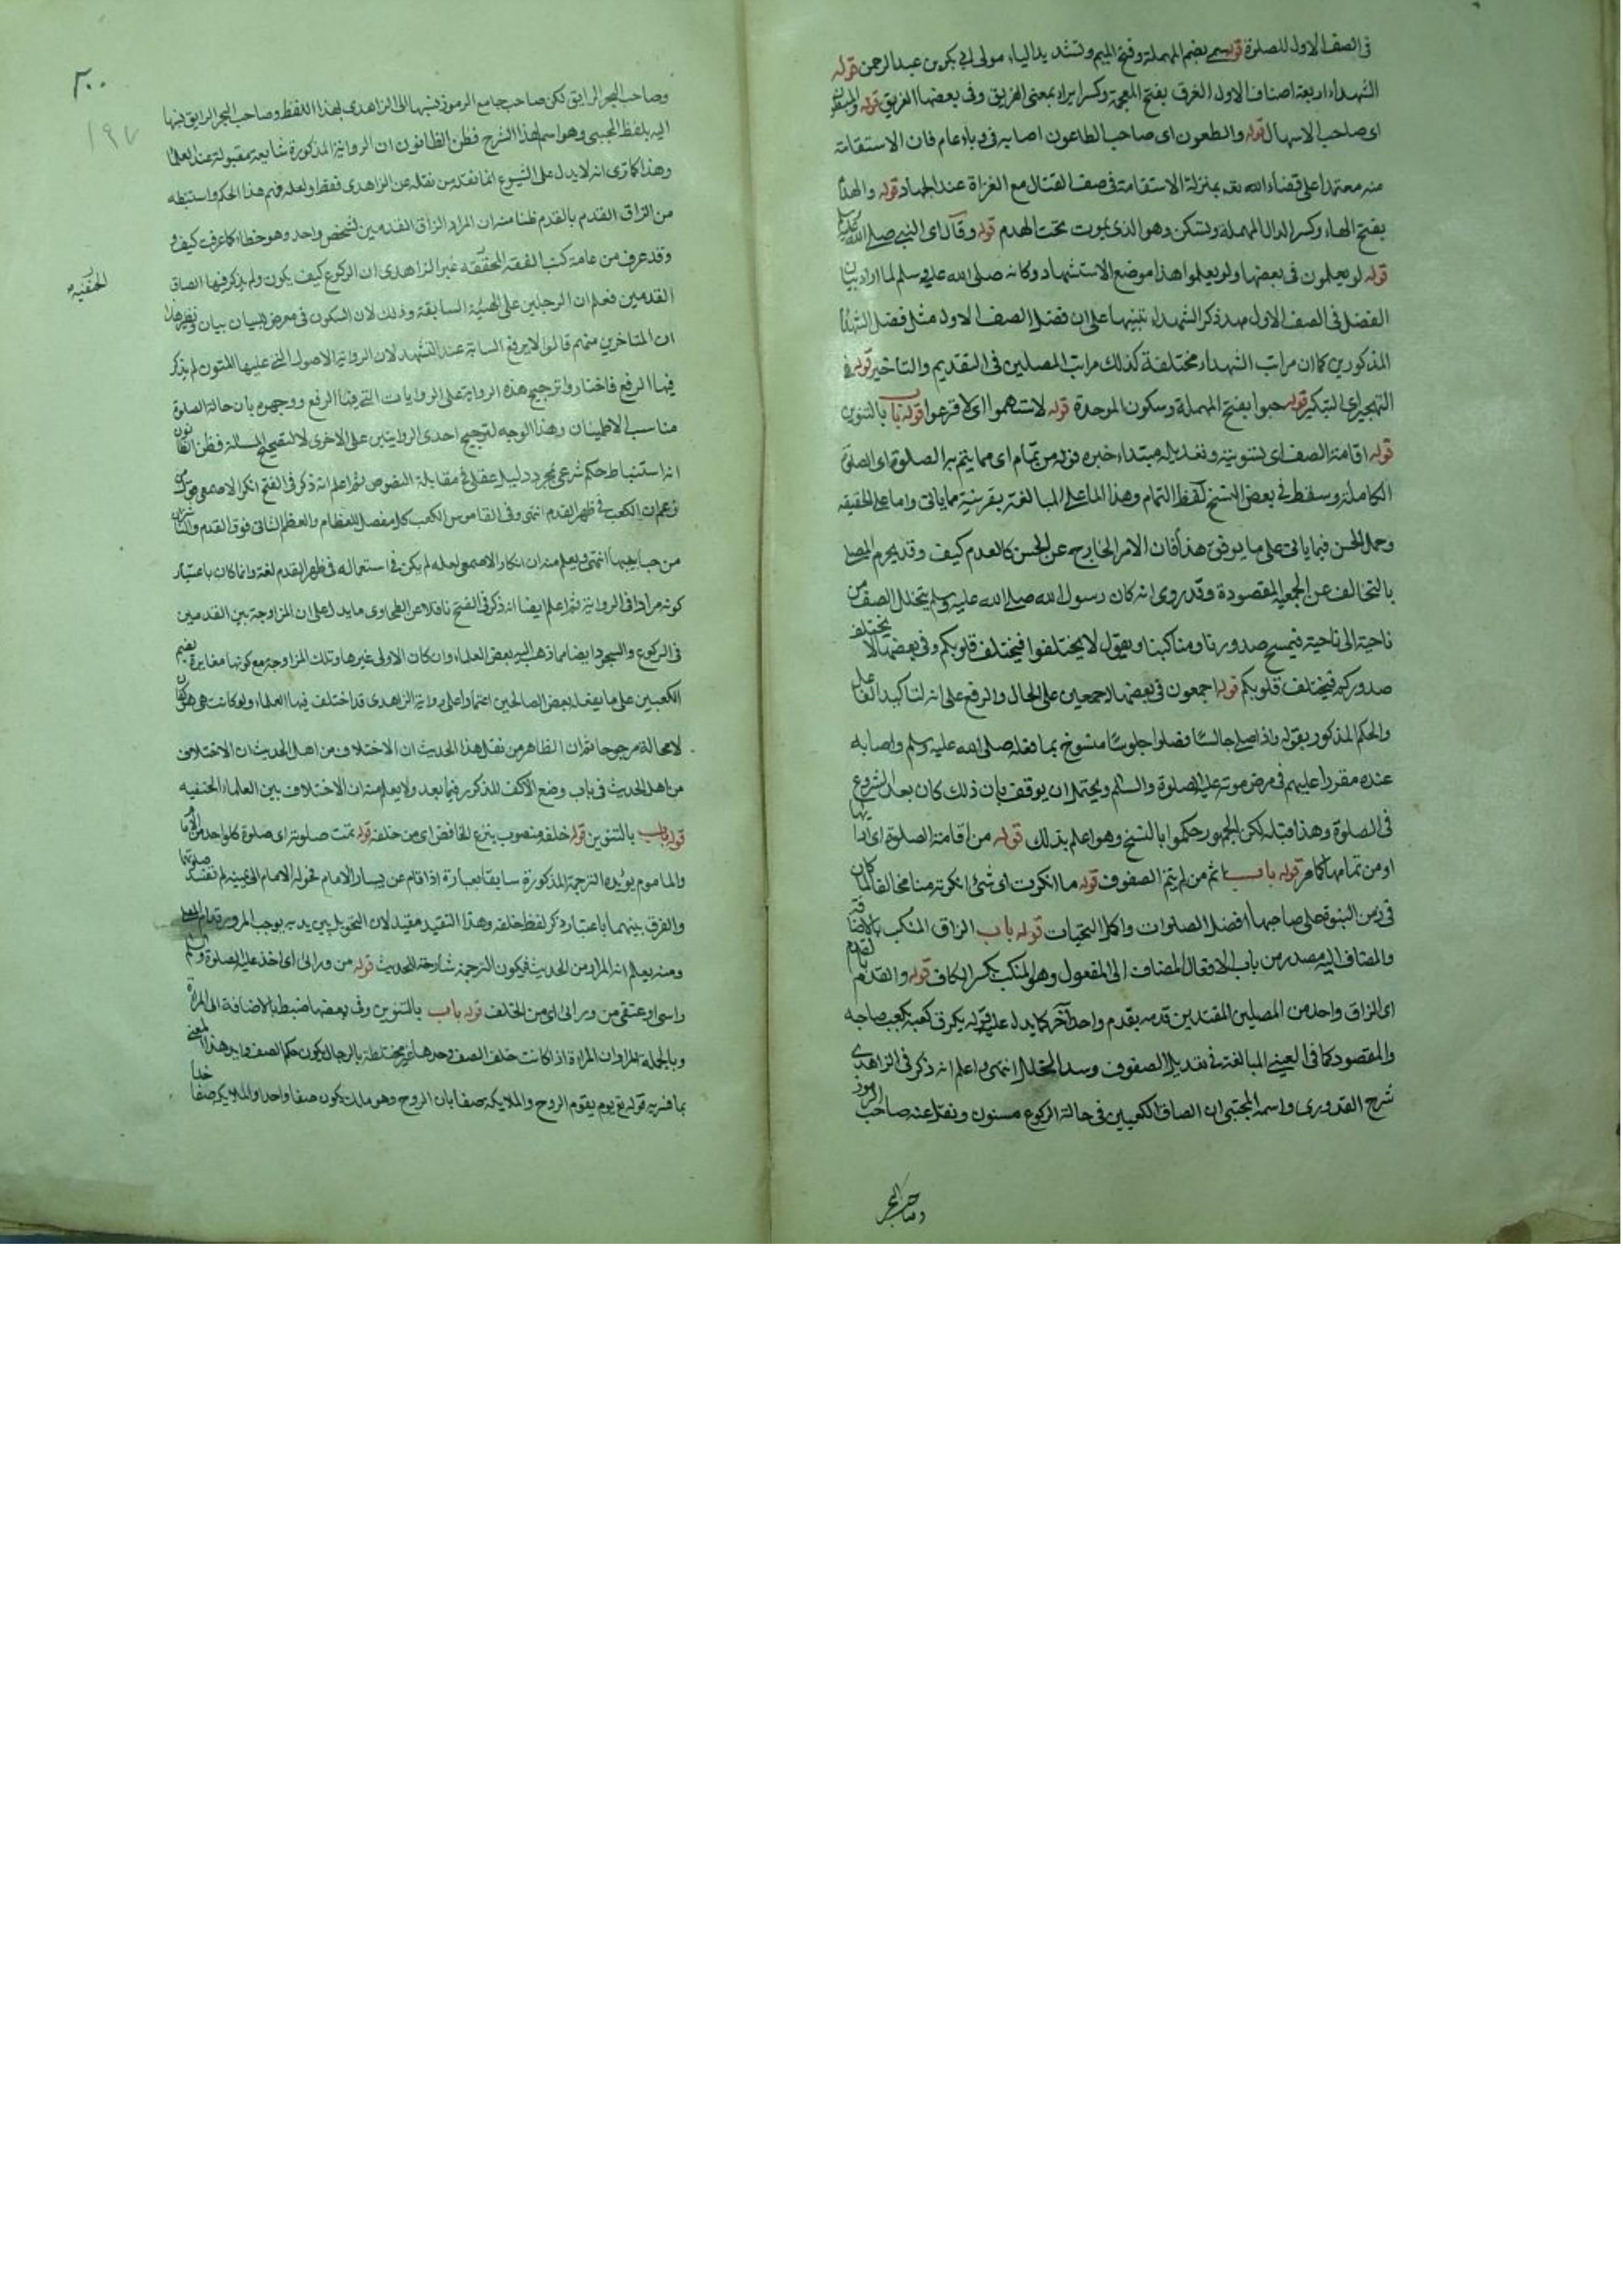 في الصف الاول للصلوة قوله سمي بضم المهملة وفتح الميم وتشديد الياء مولى ابي بكر بن عبد الرحمن قوله
الشهداء اربعة اصناف الاول الغرق بفتح المعجمة وكسر الراء بمعنى الغريق وفي بعضها الغريق قوله والمبطون
اى صاحب الاسهال قوله والمطعون اى صاحب الطاعون اصابه في وباء عام فان الاستقامة
منه معتمدا على قضاء الله تعـ بمنزلة الاستقامة في صف القتال مع الغزاة عند الجهاد قوله والهدم
بفتح الهاء وكسر الدال المهملة وتسكن وهو الذى يموت تحت الهدم قوله وقال اى النبي صلى الله عليه وسلم
قوله لو يعلمون في بعضها ولو يعلموا هذا موضع الاستشهاد وكانه صلى الله عليه وسلم لما اراد بيان
الفضل في الصف الاول مهد ذكر الشهداء تنبيها على ان فضل الصف الاول مثل فضل الشهداء
المذكورين كما ان مراتب الشهداء مختلفة كذلك مراتب المصلين في التقديم والتأخير قوله في
التهجير اى التبكير قوله حبوا بفتح المهملة وسكون الموحدة قوله لاستهموا اى لاقترعوا قوله باب بالتنوين
قوله اقامة الصف اى تسويته وتعديله مبتداء خبره قوله من تمام اى مما يتم به الصلوة اى الصلوة
الكاملة وسقط في بعض النسخ لفظ التمام وهذا اما على المبالغة بقرينة ما ياتى واما على الحقيقة
وحمل الحسن فيما ياتى على ما يوفق هذا فان الامر الخارج عن الحسن كالعدم كيف وقد يحرم المصلى
بالتخالف عن الجمعية المقصودة وقد روى انه كان رسول الله صلى الله عليه وسلم يتخلل الصف من
ناحية الى ناحية فيمسح صدورنا ومناكبنا ويقول لا يختلفوا فيختلف قلوبكم وفي بعضها لا يختلف
صدوركم فيختلف قلوبكم قوله اجمعون في بعضها اجمعين على الحال والرفع على انه لتاكيد الفاعل
والحكم المذكور بقوله واذا صلى جالسًا فصلوا جلوسًا منسوخ بما فعله صلى الله عليه وسلم واصحابه
عنده مقررا عليهم في مرض موته عليه الصلوة والسلم ويحتمل ان يوقف بان ذلك كان بعد الشروع
في الصلوة وهذا قبله لكن الجمهور حكموا بالنسخ وهو اعلم بذلك قوله من اقامة الصلوة اى ادائها
او من تمامها كما مر قوله باب اثم من لم يتم الصفوف قوله ما انكرت اى شئ انكرته منا مخالفا لما كان
في زمن النبوة على صاحبها افضل الصلوات واكمل التحيات قوله باب الزاق المنكب بالاضافة
والمضاف اليه مصدر من باب الافعال المضاف الى المفعول وهو المنكب بكسر الكاف قوله والقدم بالقدم
اى الزاق واحد من المصلين المقتدين قدمه بقدم واحد آخر كما يدل عليه قوله يكزق كعبه بكعب صاحبه
والمقصود كما في العيني المبالغة في تعديل الصفوف وسد الخلل انتهى واعلم انه ذكر في الزاهدى
شرح القدورى واسمه المجتبى ان الصاق الكعبين في حالة الركوع مسنون ونقل عنه صاحب الرموز
وصاحب البحر
٢٠٠
١٩٧
وصاحب البحر الرايق لكن صاحب جامع الرموز نسبها الى الزاهدى بهذا اللفظ وصاحب البحر الرايق نسبها
اليه بلفظ المجتبى وهو اسم لهذا الشرح فظن الظانون ان الرواية المذكورة شايعة مقبولة عند العلماء
وهذا كما ترى انه لا يدل على الشيوع انما نقله من نقله عن الزاهدى فقط ولعله فهم هذا الحكم واستنبطه
من الزاق القدم بالقدم ظنا منه ان المراد الزاق القدمين لشخص واحد وهو خطأ كما عرفت كيف
وقد عرف من عامة كتب الفقه المحققة غير الزاهدى ان الركوع كيف يكون ولم يذكر فيها الصاق
الحنفية
القدمين فعلم ان الرجلين على الهيئة السابقة وذلك لان السكون في معرض البيان بيان ونظير هذا
ان المتاخرين منهم قالوا لا يرفع السبابة عند التشهد لان الرواية الاصول التي عليها المتون لم يذكر
فيها الرفع فاختاروا ترجيح هذه الرواية على الروايات التي فيها الرفع ووجهه بان حالة الصلوة
مناسب الاطمينان وهذا الوجه لترجيح احدى الروايتين على الاخرى لا لتصحيح المسئلة فظن الظانون
انه استنباط حكم شرعى بمجرد دليل عقلى في مقابلة النصوص ثم اعلم انه ذكر في الفتح انكر الاصمعى قول من
زعم ان الكعب في ظهر القدم انتهى وفي القاموس الكعب كل مفصل للعظام والعظم الناتى فوق القدم والناشزان
من جانبيها انتهى ويعلم منه ان انكار الاصمعى لعله لم يكن في استعماله في ظهر القدم لغة وانما كان باعتبار
كونه مرادا في الرواية ثم اعلم ايضا انه ذكر في الفتح ناقلا عن الطحاوى ما يدل على ان المزاوجة بين القدمين
في الركوع والسجود ايضا مما ذهب اليه بعض العلماء وان كان الاولى غيرها وتلك المزاوجة مع كونها مغايرة لضم
الكعبين على ما يفعله بعض الصالحين اعتمادا على رواية الزاهدى قد اختلف فيها العلماء ولو كانت هى هى لكان
لا محالة مرجوحا ثم ان الظاهر من نقل هذا الحديث ان الاختلاف من اهل الحديث ان الاختلاف
من اهل الحديث في باب وضع الاكف للذكور فيما بعد ولا يعلم منه ان الاختلاف بين العلماء الحنفيه
قوله باب بالتنوين قوله خلفه منصوب بنزع الخافض اى من خلفه قوله تمت صلوته اى صلوة كل واحد من الامام
والماموم يؤيده الترجمة المذكورة سابقا بعبارة اذا قام عن يسار الامام فحوله الامام الى يمينه لم تفسد صلوتهما
والفرق بينهما باعتبار ذكر لفظ خلفه وهذا التقييد مفيد لان التحويل بين يديه يوجب المرور قدام المصلى
ومنه يعلم انه المراد من الحديث فيكون الترجمة شارحة للحديث قوله من ورائى اى اخذ عليه الصلوة والسلم
راسى او عنقى من ورائى اى من الخلف قوله باب بالتنوين وفي بعضها ضبط بالاضافة الى المرأة
وبالجملة المراد ان المراة اذا كانت خلف الصف وحدها غير مختلطة بالرجال يكون حكم الصف وايد هذا المعنى
بما فسر به قوله تع يوم يقوم الروح والملايكة صفا بان الروح وهو ملك يكون صفا واحدا والملايكة صفا